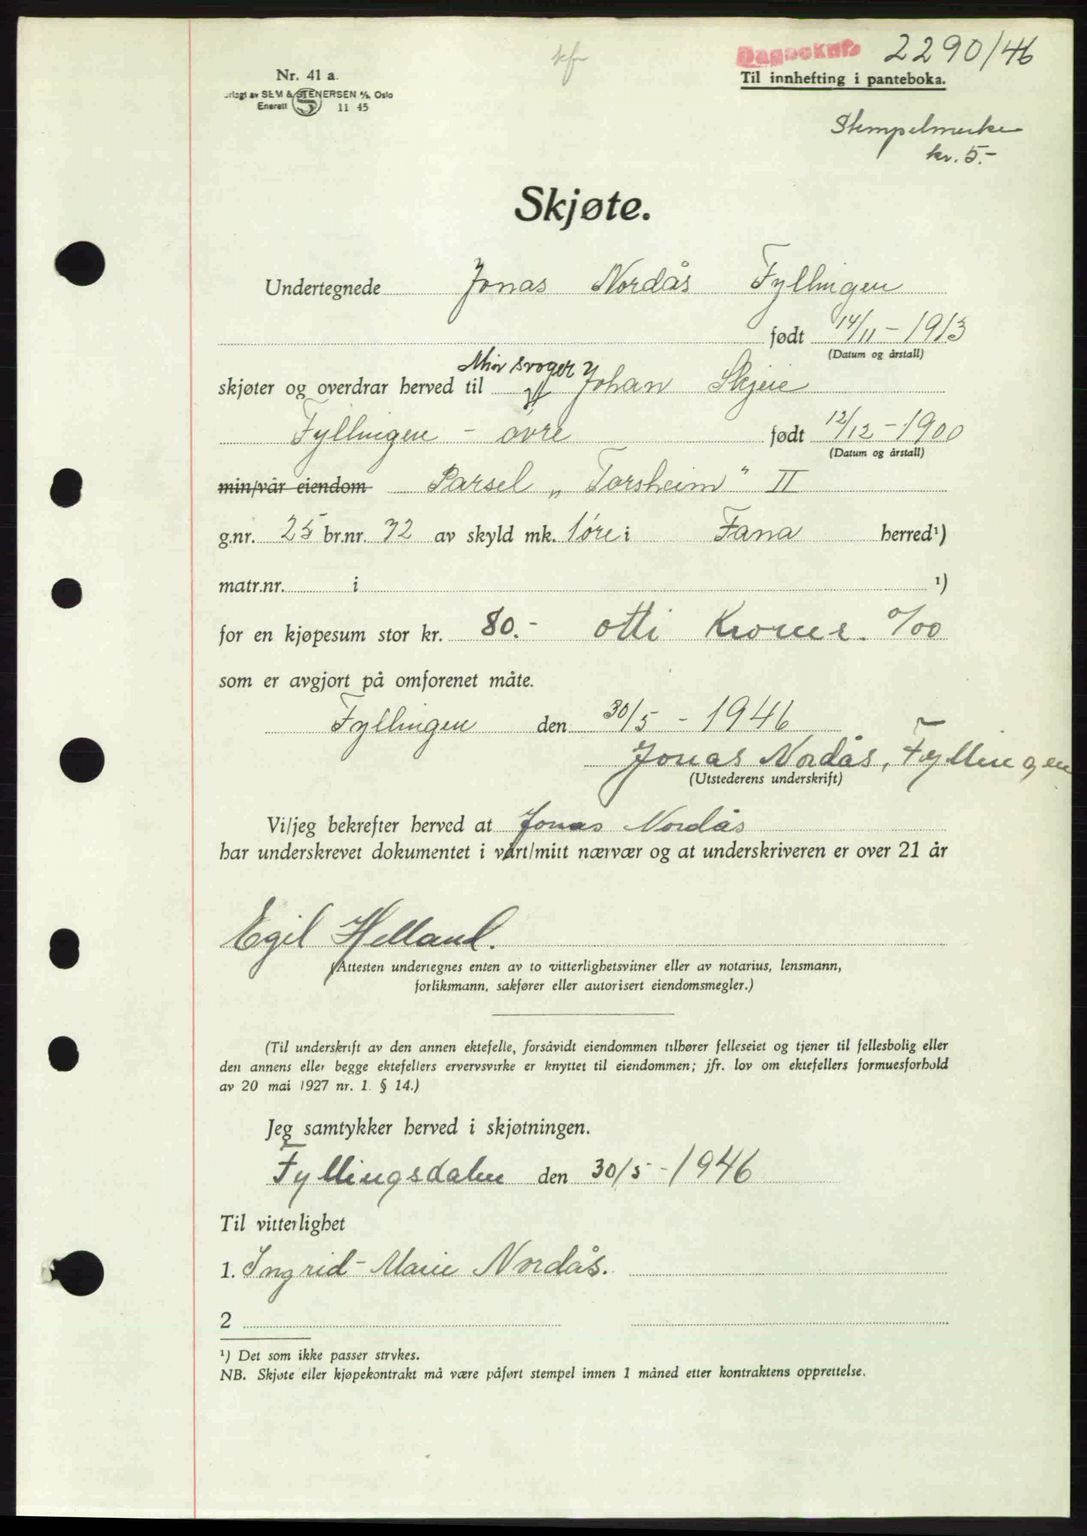 Dagboknr. 2290/46
Nr. 41 a.
Til innhefting i panteboka.
SEM & STENERSEN A/S, Oslo
Enerett S 11 45
Stempelmerke
kr. 5.-
Skjøte.
Undertegnede Jonas Nordås Fyllingen
født 14/11 - 1913
(Datum og årstall)
Min svoger
skjøter og overdrar herved til Johan Skjeie
Fyllingen - øvre født 12/12 - 1900
(Datum og årstall)
min/vår eiendom Parsel „Torsheim" II
g.nr. 25 br.nr. 72 av skyld mk. 1 øre i Fana herred¹)
matr.nr. i ¹)
for en kjøpesum stor kr. 80.- otti Kroner. 0/00
som er avgjort på omforenet måte.
Fyllingen den 30/5 - 1946
Jonas Nordås, Fyllingen
(Utstederens underskrift)
Vi/jeg bekrefter herved at Jonas Nordås
har underskrevet dokumentet i vårt/mitt nærvær og at underskriveren er over 21 år
Egil Helland.
(Attesten undertegnes enten av to vitterlighetsvitner eller av notarius, lensmann,
forliksmann, sakfører eller autorisert eiendomsmegler.)
(Til underskrift av den annen ektefelle, forsåvidt eiendommen tilhører felleseiet og tjener til fellesbolig eller
den annens eller begge ektefellers ervervsvirke er knyttet til eiendommen; jfr. lov om ektefellers formuesforhold
av 20 mai 1927 nr. 1. § 14.)
Jeg samtykker herved i skjøtningen.
Fyllingsdalen den 30/5 - 1946
Til vitterlighet
1. Ingrid-Marie Nordås.
2
¹) Det som ikke passer strykes.
NB. Skjøte eller kjøpekontrakt må være påført stempel innen 1 måned etter kontraktens opprettelse.